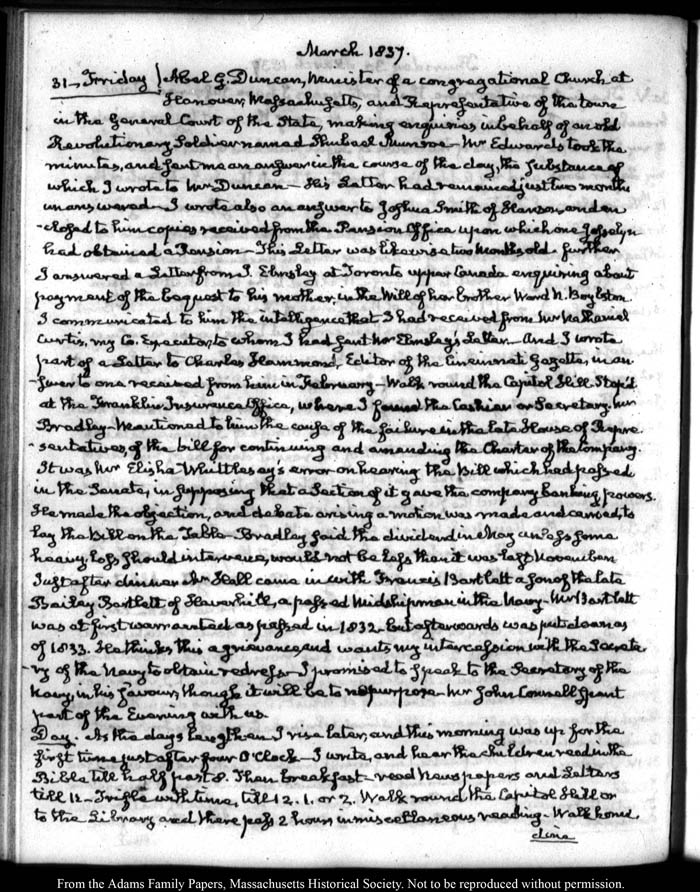 March 1837.
31. Friday Abel G. Duncan, Minister of a congregational Church at
Hanover, Massachusetts, and Representative of the town
in the General Court of the State, making enquiries in behalf of an old
Revolutionary Soldier named Shubael Munroe — Mr Edwards took the
minutes, and sent me an answer in the course of the day, the substance of
which I wrote to Mr Duncan — His Letter had remained just two months
unanswered — I wrote also an answer to Joshua Smith of Hanson, and en
-closed to him copies received from the Pension Office upon which one Josselyn
had obtained a Pension — This Letter was likewise two months old. further
I answered a Letter from J. Elmsley at Toronto upper Canada enquiring about
payment of the bequest to his mother, in the Will of her brother Ward N. Boylston
I communicated to him the intelligence that I had received from Mr Nathaniel
Curtis, my Co. Executor, to whom I had sent Mr Elmsley's Letter — And I wrote
part of a Letter to Charles Hammond, Editor of the Cincinnati Gazette, in an
-swer to one received from him in February — Walk round the Capitol Hill. Stop'd
at the Franklin Insurance Office, where I found the Cashier or Secretary. Mr
Bradley — Mentioned to him the cause of the failure in the late House of Repre
-sentatives, of the bill for continuing and amending the Charter of the Company.
It was Mr Elisha Whittlesey's error on hearing the Bill which had passed
in the Senate, in supposing that a Section of it gave the company banking powers.
He made the objection, and debate arising a motion was made and carried, to
lay the Bill on the Table — Bradley said the dividend in May unless some
heavy loss should intervene, would not be less than it was last November.
Just after dinner Mr Hall came in with Francis Bartlett a son of the late
Bailey Bartlett of Haverhill, a passed Midshipman in the Navy — Mr Bartlett
was at first warranted as passed in 1832 — but afterwards was put down as
of 1833. He thinks this a grievance and wants my intercession with the Secreta
-ry of the Navy to obtain redress — I promised to speak to the Secretary of the
Navy, in his favour, though it will be to no purpose — Mr John Connell spent
part of the Evening with us.
Day. As the days lengthen I rise later, and this morning was up for the
first time just after four O'Clock — I write, and hear the children read in the
Bible till half past 8. Then breakfast — read Newspapers and Letters
till 11 — Trifle with time, till 12. 1. or 2. Walk round the Capitol Hill or
to the Library and there pass 2 hours in miscellaneous reading — Walk home.
dine
From the Adams Family Papers, Massachusetts Historical Society. Not to be reproduced without permission.